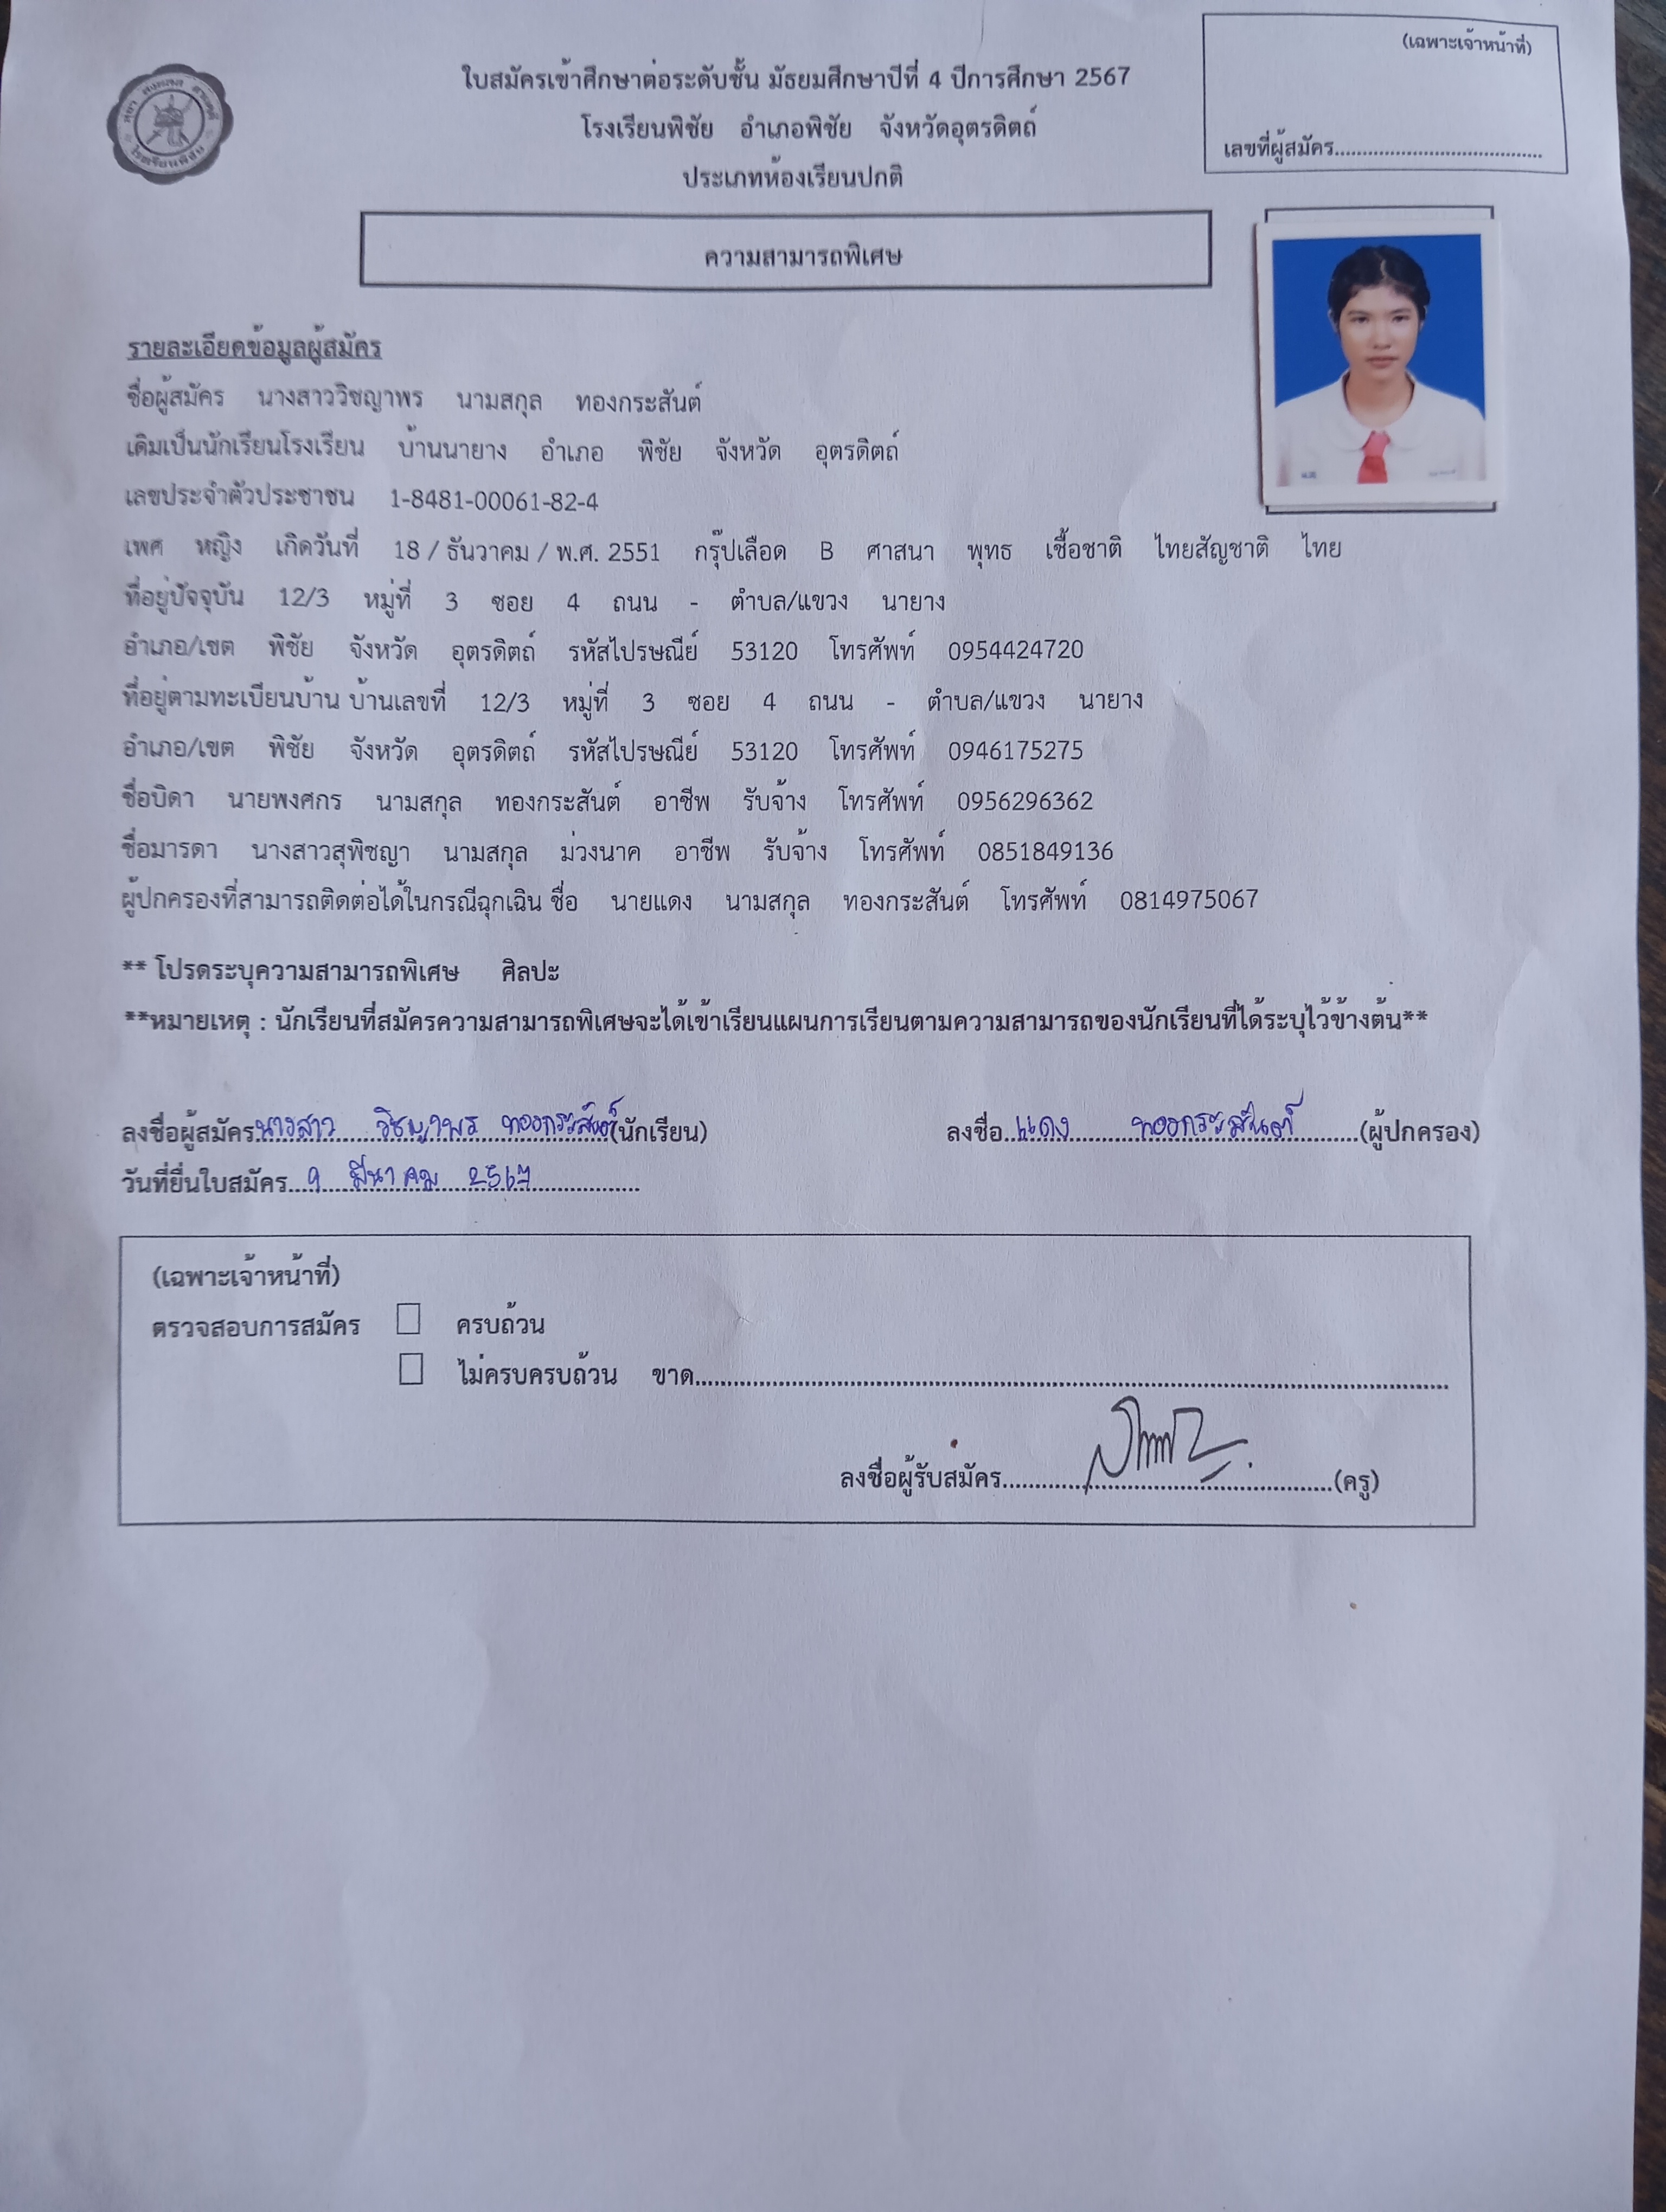 (เฉพาะเจ้าหน้าที่)
เลขที่ผู้สมัคร
ใบสมัครเข้าศึกษาต่อระดับชั้น มัธยมศึกษาปีที่ 4 ปีการศึกษา 2567
โรงเรียนพิชัย อำเภอพิชัย จังหวัดอุตรดิตถ์
ประเภทห้องเรียนปกติ
โรงเรียนพิชัย
ความสามารถพิเศษ
รายละเอียดข้อมูลผู้สมัคร
ชื่อผู้สมัคร นางสาววิชญาพร นามสกุล ทองกระสันต์
เดิมเป็นนักเรียนโรงเรียน บ้านนายาง อำเภอ พิชัย จังหวัด อุตรดิตถ์
เลขประจำตัวประชาชน 1-8481-00061-82-4
เพศ หญิง เกิดวันที่ 18 / ธันวาคม / พ.ศ. 2551 กรุ๊ปเลือด B ศาสนา พุทธ เชื้อชาติ ไทยสัญชาติ ไทย
ที่อยู่ปัจจุบัน 12/3 หมู่ที่ 3 ซอย 4 ถนน - ตำบล/แขวง นายาง
อำเภอ/เขต พิชัย จังหวัด อุตรดิตถ์ รหัสไปรษณีย์ 53120 โทรศัพท์ 0954424720
ที่อยู่ตามทะเบียนบ้าน บ้านเลขที่ 12/3 หมู่ที่ 3 ซอย 4 ถนน - ตำบล/แขวง นายาง
อำเภอ/เขต พิชัย จังหวัด อุตรดิตถ์ รหัสไปรษณีย์ 53120 โทรศัพท์ 0946175275
ชื่อบิดา นายพงศกร นามสกุล ทองกระสันต์ อาชีพ รับจ้าง โทรศัพท์ 0956296362
ชื่อมารดา นางสาวสุพิชญา นามสกุล ม่วงนาค อาชีพ รับจ้าง โทรศัพท์ 0851849136
ผู้ปกครองที่สามารถติดต่อได้ในกรณีฉุกเฉิน ชื่อ นายแดง นามสกุล ทองกระสันต์ โทรศัพท์ 0814975067
** โปรดระบุความสามารถพิเศษ ศิลปะ
**หมายเหตุ : นักเรียนที่สมัครความสามารถพิเศษจะได้เข้าเรียนแผนการเรียนตามความสามารถของนักเรียนที่ได้ระบุไว้ข้างต้น**
ลงชื่อผู้สมัคร นางสาว วิชญาพร ทองกระสันต์ (นักเรียน) ลงชื่อ แดง ทองกระสันต์ (ผู้ปกครอง)
วันที่ยื่นใบสมัคร 9 มีนาคม 2567
(เฉพาะเจ้าหน้าที่)
ตรวจสอบการสมัคร ครบถ้วน
ไม่ครบครบถ้วน ขาด
ลงชื่อผู้รับสมัคร (ครู)